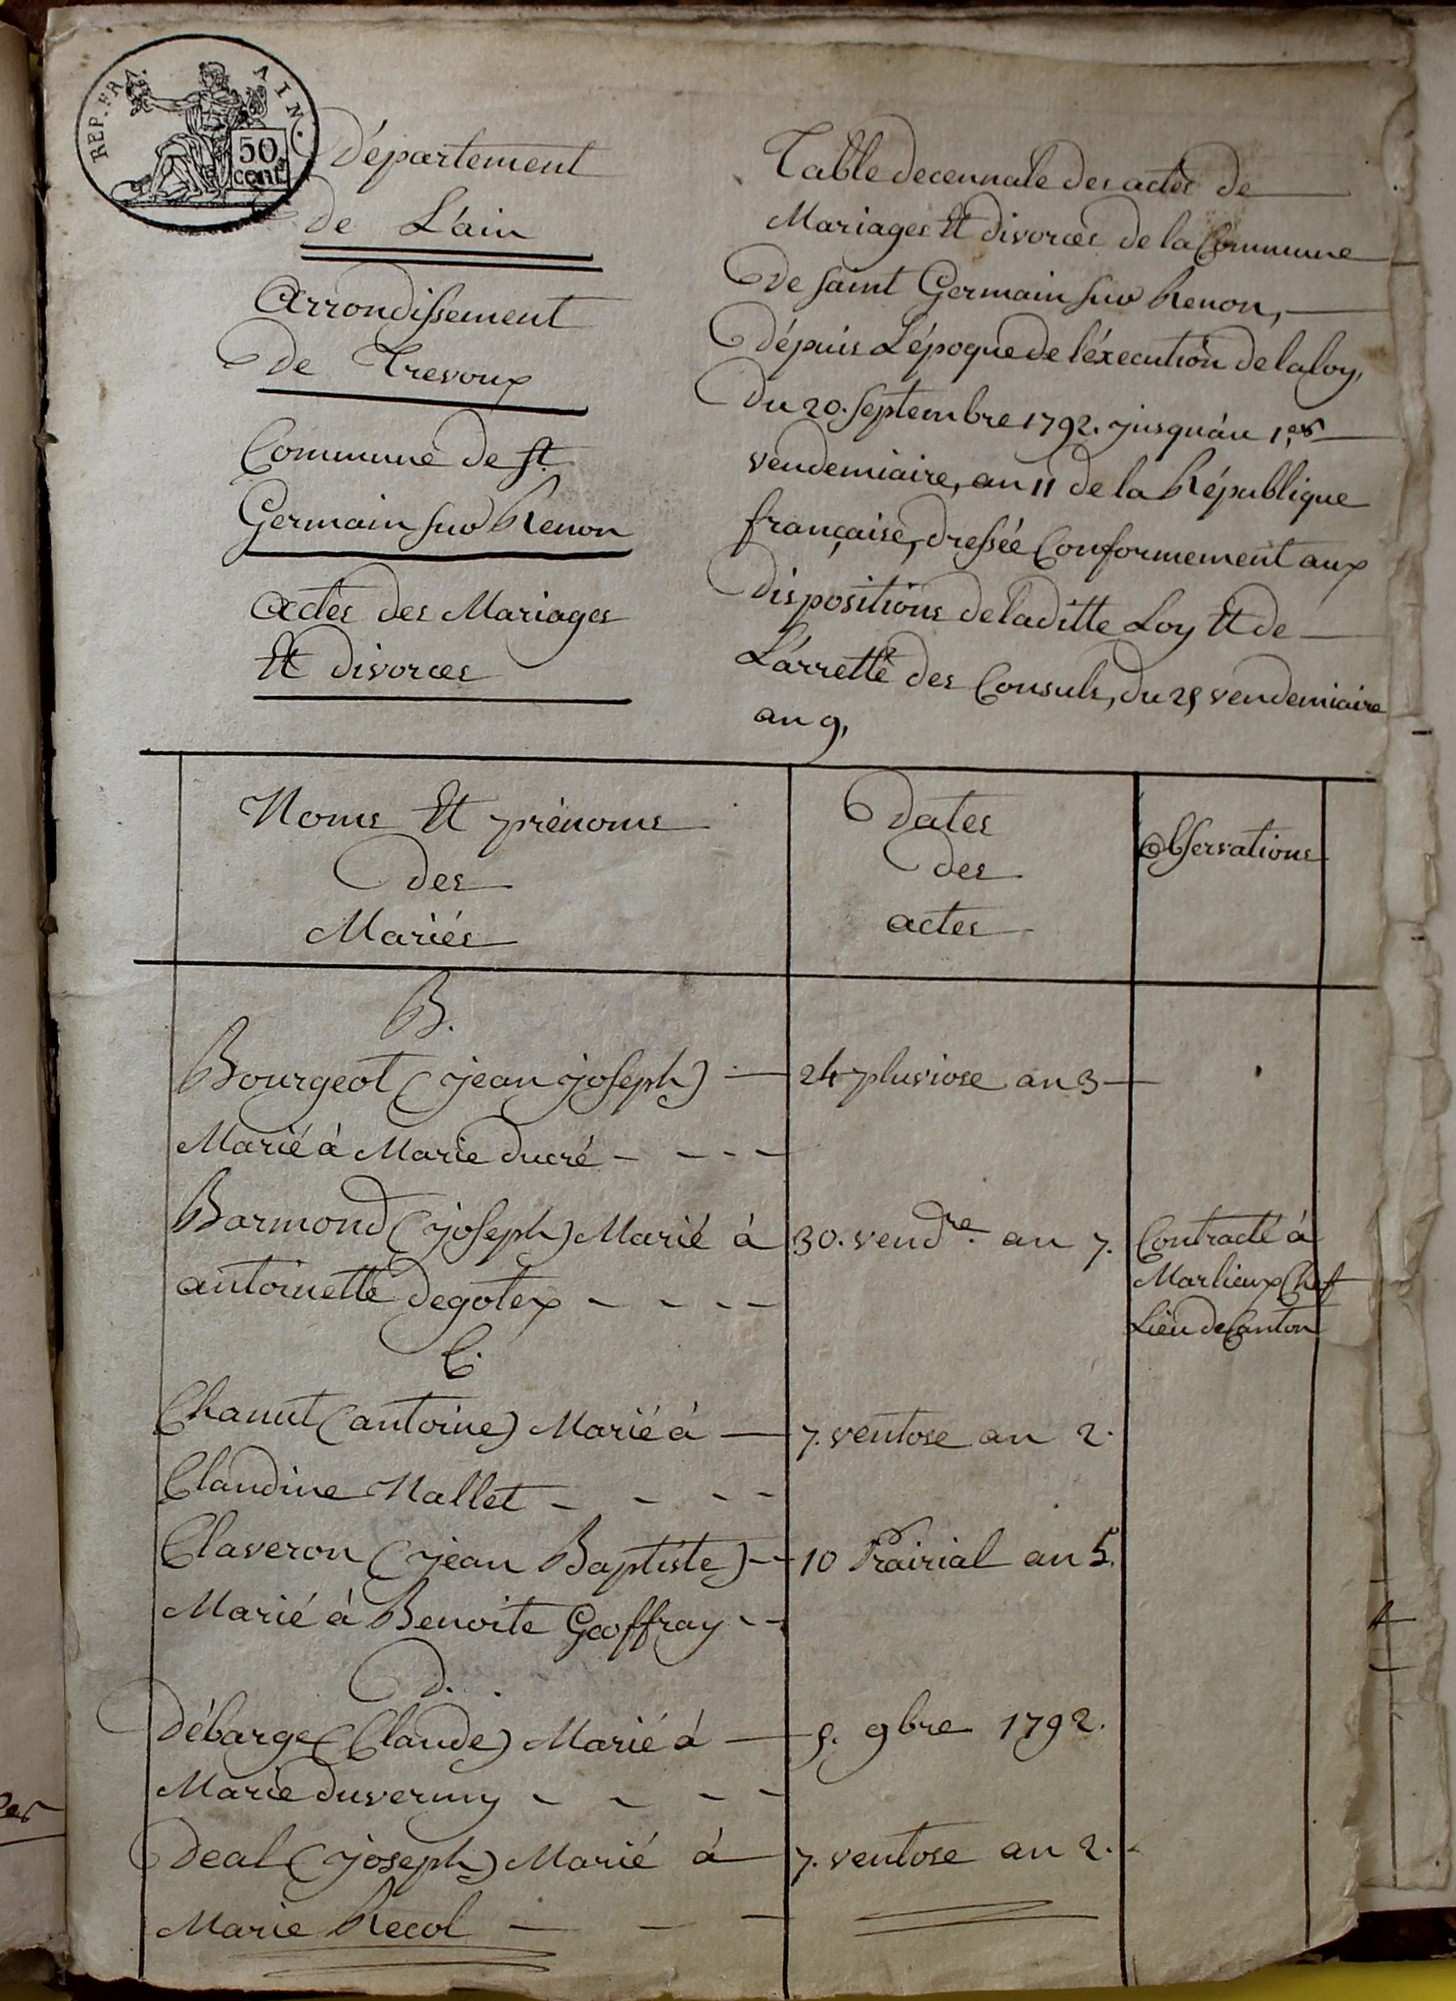 REP. FRA. AIN.
50 cent.
Département
de L'ain
Arrondissement
de Trevoux
Commune de St.
Germain sur Renon
actes des Mariages
Et divorces
Table decennale des actes de
Mariages Et divorces de la Commune
de saint Germain sur Renon,
dépuis L'époque de l'éxecution de la loy,
du 20. septembre 1792. jusqu'au 1.er
vendemiaire, an 11 de la République
française, dressée Conformement aux
dispositions de laditte Loy Et de
L'arretté des Consuls, du 25 vendemiaire
an 9,
Noms Et prénoms
des
Mariés
Dates
des
actes
observations
B.
Bourgeot (jean joseph) 24 pluviose an 3
Marié à Marie ducré
Barmond (joseph) Marié à 30. vend.re an 7. Contracté à
antoinette degotex Marlieux Chef
Lieu de Canton
C.
Chanut (antoine) Marié à 7. ventose an 2.
Claudine Nallet
Claveron (jean Baptiste) 10 Prairial an 5.
Marié à Benoite Geoffray
D.
débarge (Claude) Marié à 5. 9bre 1792.
Marie duverny
deal (joseph) Marié à 7. ventose an 2.
Marie Recol